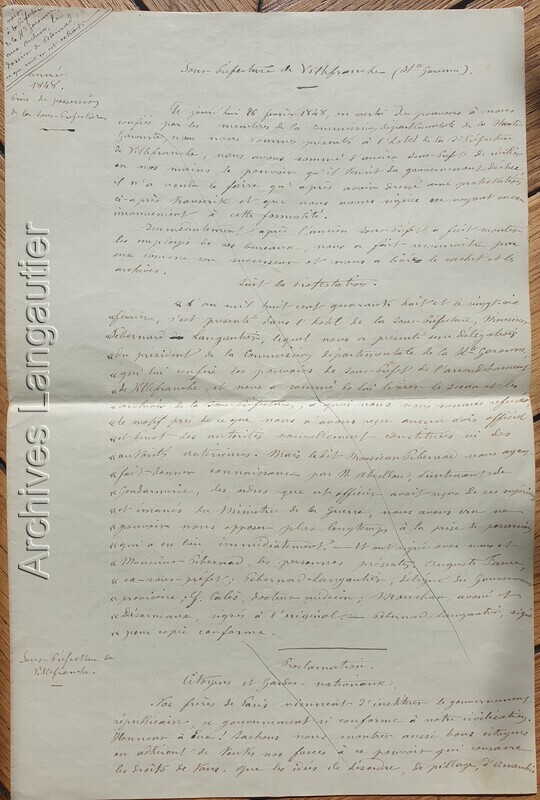 Année
1848.
Prise de possession
de la sous-préfecture
Sous-Préfecture de Villefranche (Hte Garonne)
Ce jourd'hui 26 février 1848, en vertu des pouvoirs à nous
confiés par les membres de la Commission départementale de la Haute
Garonne nous nous sommes présenté à l'hotel de la ss Préfecture
de Villefranche, nous avons sommé l'ancien sous-préfet de
en nos mains le pouvoir qu'il tenait du gouvernement déchu
il n'a voulu le faire qu'après avoir dressé une protestation
ci-après transcrite et que nous avons signée ne voyant aucun
inconvénient à cette formalité.
Immédiatement après l'ancien sous-préfet a fait monter
les employés de ses bureaux, nous a fait reconnaitre par
eux comme son successeur et nous a livré le cachet et les
archives.
Suit la protestation.
« L'an mil huit cent quarante huit et le vingt six
« février, s'est présenté dans l'hotel de la sous-préfecture, Monsieur
Pébernad Langautier, lequel nous a présenté une délégation
« du président de la Commission départementale de la Hte Garonne
« qui lui confère les pouvoirs de sous-préfet de l'arrondissement
« de Villefranche, et nous a sommé de lui livrer le sceau et les
archives de la sous-préfecture, à quoi nous nous sommes refusés
le motif pris de ce que nous n'avons reçu aucun avis officiel
« et direct des autorités nouvellement constituées ni des
« autorités antérieures. Mais ledit Monsieur Pébernad nous ayant
« fait donner connaissance par M. Abeillou, Lieutenant de
« Gendarmerie, des ordres que cet officier avait reçus de ses supérieurs
« et émanés du Ministre de la Guerre, nous avons cru ne
« pouvoir nous opposer plus longtemps à la prise de possession
« qui a eu lieu immédiatement. — Et ont signé avec nous et
« Monsieur Pébernad, les personnes présentes Auguste
« ex-sous-préfet; Pébernad-Langautier, délégué du Gouvernement
« provisoire; G. Calès, docteur-médecin; avoué et
« Désarnaux, signés à l'original. — Pébernad-Langautier, signé
« pour copie conforme.
Sous-Préfecture de
Villefranche.
Proclamation.
Citoyens et Gardes-nationaux,
Nos frères de Paris viennent d'instituer le gouvernement
républicain, ce gouvernement si conforme à notre civilisation.
Honneur à Eux! Sachons nous montrer aussi bons citoyens
en adhérant de toutes nos forces à ce pouvoir qui consacre
les droits de tous, que les idées de désordre, de pillage, d'Anarchie
Archives Langautier